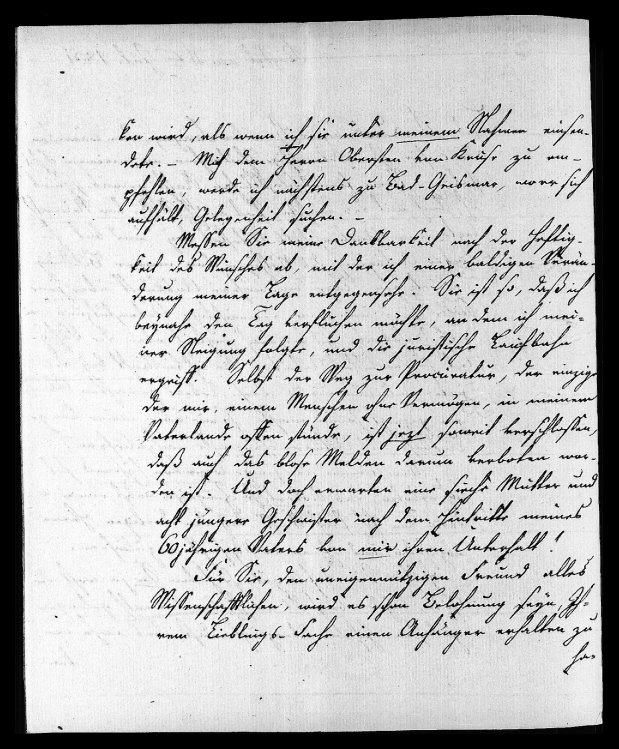 ken wird, als wenn ich sie unter meinem Nahmen einsen-
dete. - Mich dem Herrn Obersten von Kruse zu em-
pfehlen, werde ich nächstens zu Bad-Geismar, wo er sich
aufhält, Gelegenheit suchen. -
Messen Sie meine Dankbarkeit nach der Heftig-
keit des Wunsches ab, mit der ich einer baldigen Verän-
derung meiner Lage entgegensehe. Sie ist so, daß ich
beynahe den Tag verfluchen möchte, an dem ich mei-
ner Neigung folgte, und die juristische Laufbahn
ergriff. Selbst der Weg zur Procuratur, der einzige
der mir, einem Menschen ohne Vermögen, in meinem
Vaterlande offen stünde, ist jezt soweit verschlossen,
daß auch das blose Melden darum verboten wor-
den ist. Und doch erwarten eine sieche Mutter und
acht jüngere Geschwister nach dem Hintritte meines
60jährigen Vaters von mir ihren Unterhalt!
Für Sie, den uneigennützigen Freund alles
Wissenschaftlichen, wird es schon Belohnung seyn, Ih-
rem Lieblings-Fache einen Anhänger erhalten zu
ha-